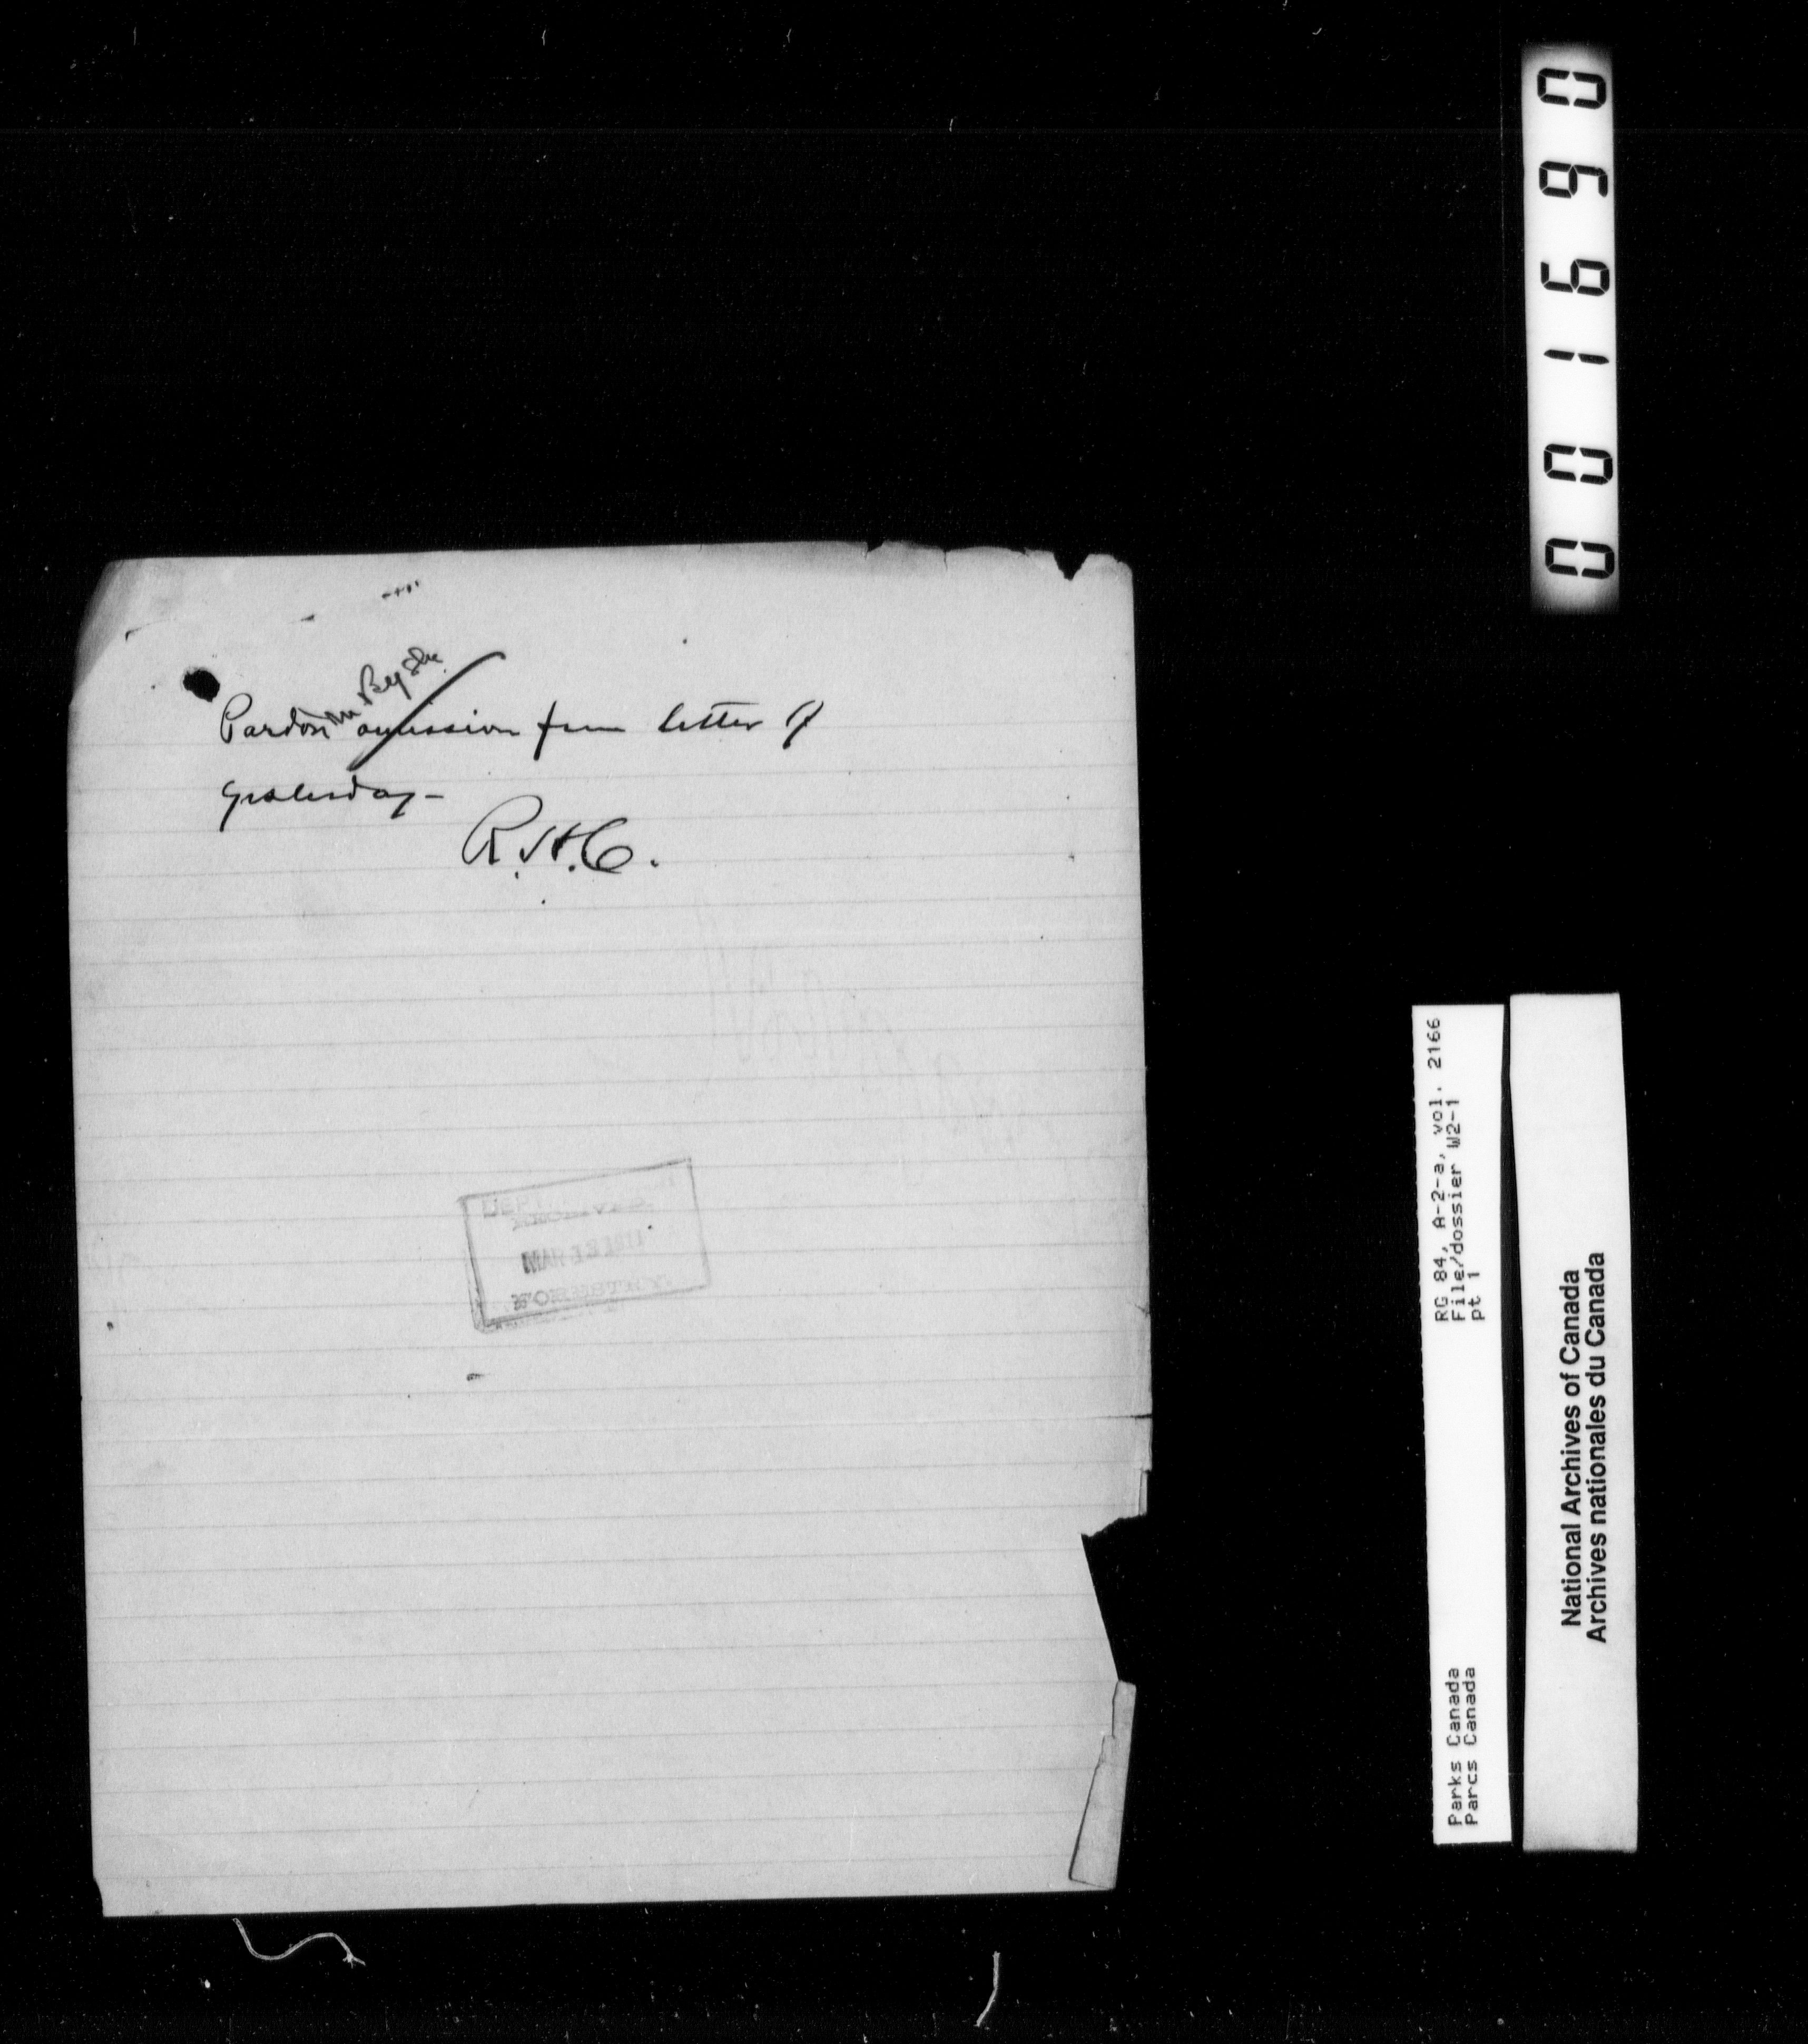 Mr Byshe
Pardon omission from letter of
yesterday -
R.H.C.
DEPT
MAR 13 1911
001690
RG 84, A-2-a, vol. 2166
File/dossier W2-1
pt 1
Parks Canada
Parcs Canada
National Archives of Canada
Archives nationales du Canada